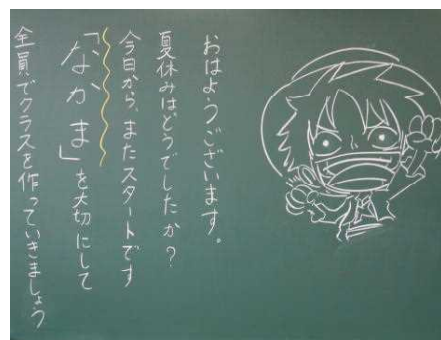 おはようございます。
夏休みはどうでしたか？
今日から、またスタートです
「なかま」を大切にして
全員でクラスを作っていきましょう